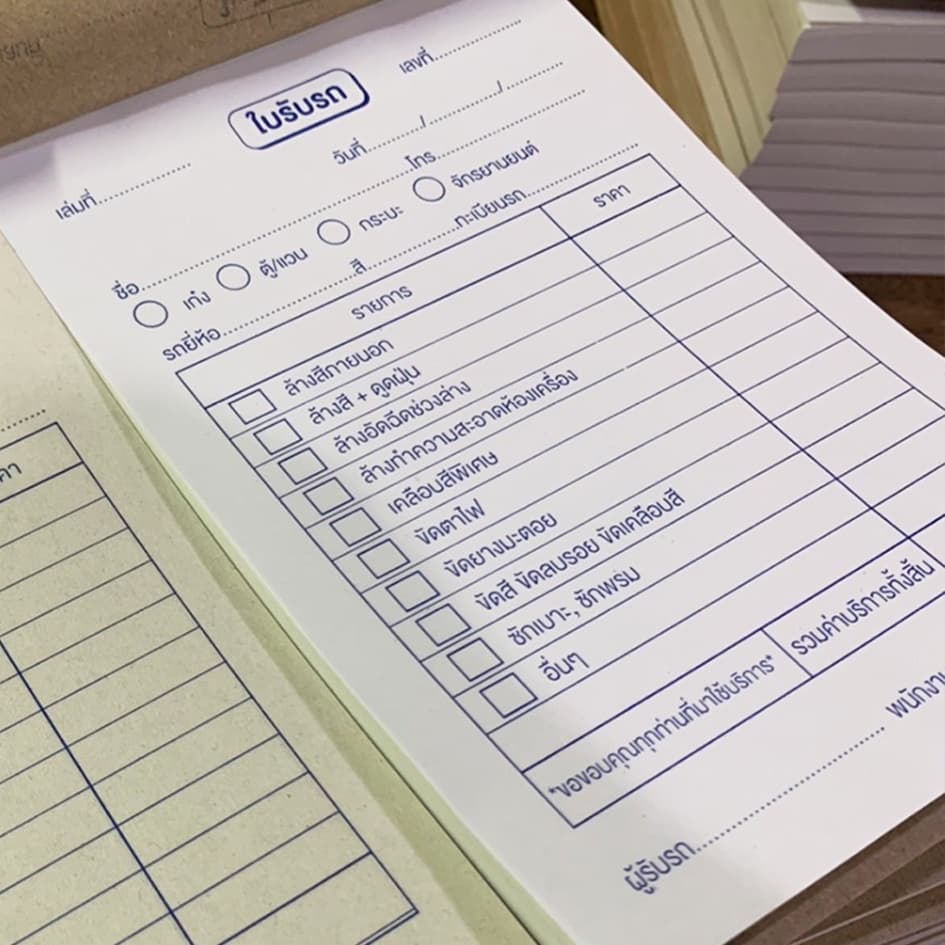 ใบรับรถ
เล่มที่.................... เลขที่....................
วันที่............/................/............
ชื่อ............................................................โทร..............................
เก๋ง ตู้/แวน กระบะ จักรยานยนต์
รถยี่ห้อ..............................สี....................ทะเบียนรถ.........................
รายการ ราคา
ล้างสีภายนอก
ล้างสี + ดูดฝุ่น
ล้างอัดฉีดช่วงล่าง
ล้างทำความสะอาดห้องเครื่อง
เคลือบสีพิเศษ
ขัดตาไฟ
ขัดยางมะตอย
ขัดสี ขัดลบรอย ขัดเคลือบสี
ซักเบาะ, ซักพรม
อื่นๆ
*ขอขอบคุณทุกท่านที่มาใช้บริการ* รวมค่าบริการทั้งสิ้น
ผู้รับรถ........................................ พนักงาน